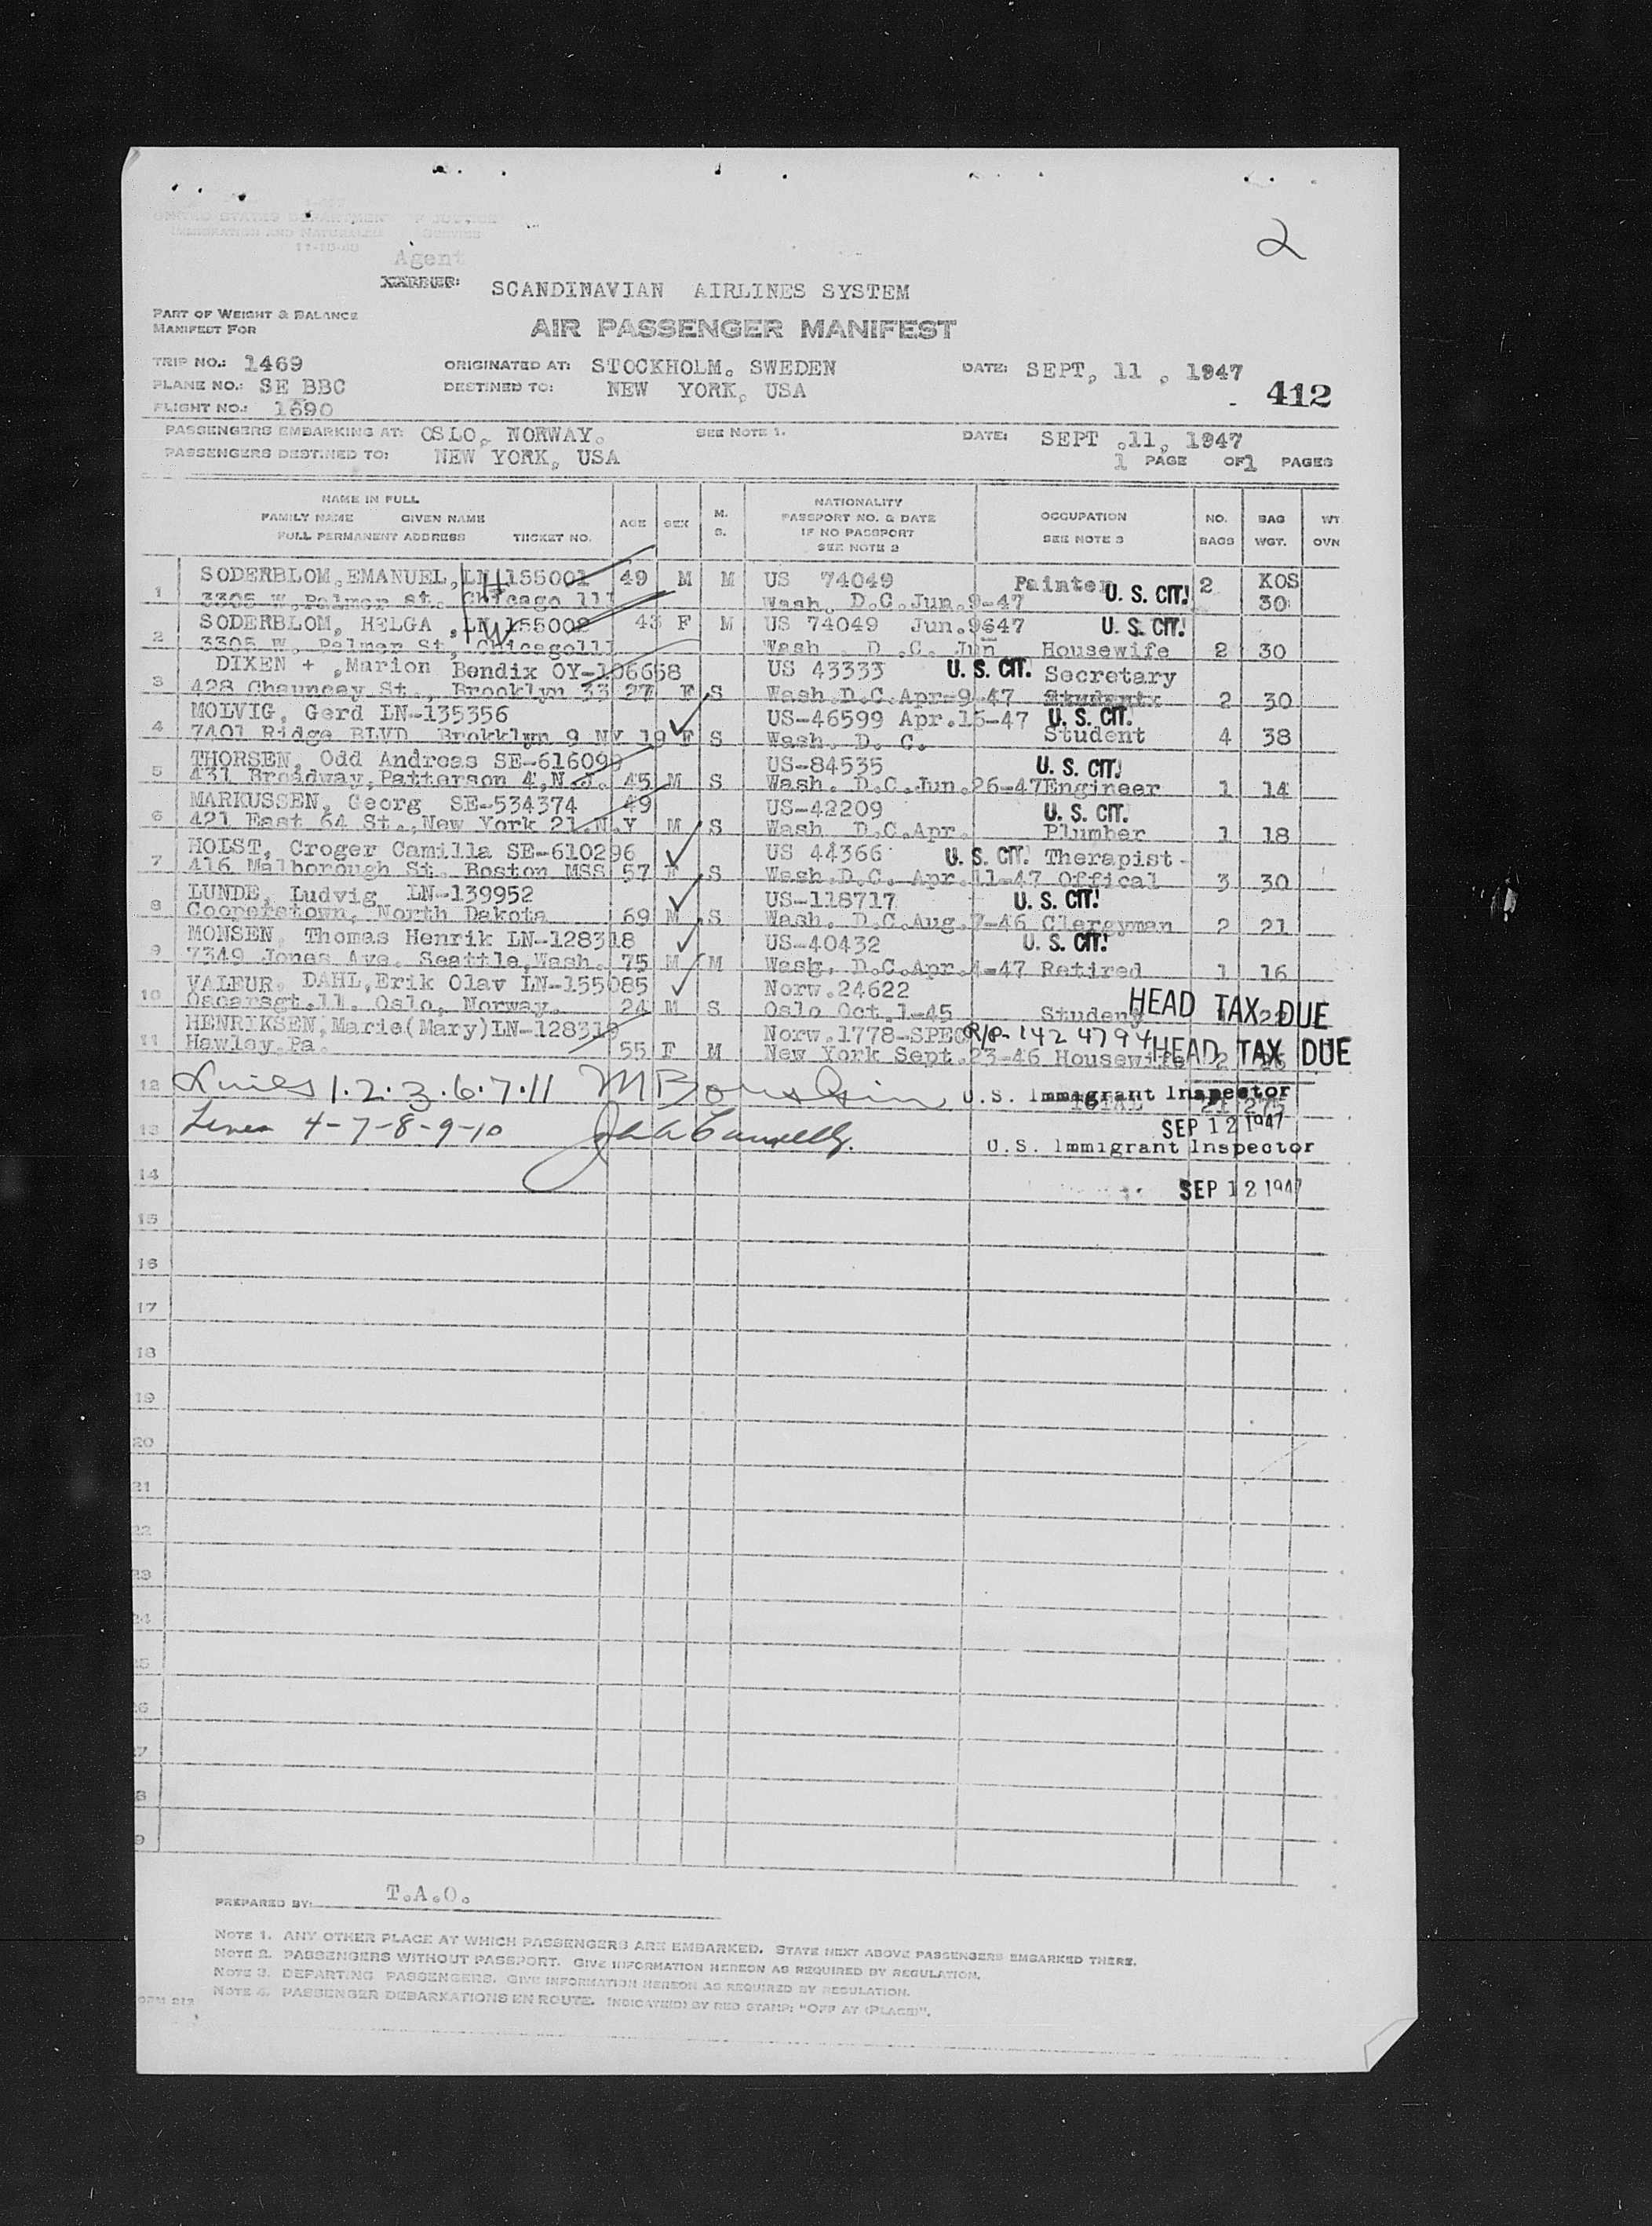 UNITED STATES DEPARTMENT OF JUSTICE
IMMIGRATION AND NATURALIZATION SERVICE
2
Agent
SCANDINAVIAN AIRLINES SYSTEM
PART OF WEIGHT & BALANCE
MANIFEST FOR
AIR PASSENGER MANIFEST
TRIP NO.: 1469 ORIGINATED AT: STOCKHOLM. SWEDEN DATE: SEPT, 11 , 1947
PLANE NO.: SE BBC DESTINED TO: NEW YORK, USA
412
FLIGHT NO.: 1690
PASSENGERS EMBARKING AT: OSLO, NORWAY. SEE NOTE 1. DATE: SEPT .11, 1947
PASSENGERS DESTINED TO: NEW YORK, USA 1 PAGE OF 1 PAGES
NAME IN FULL
FAMILY NAME GIVEN NAME
FULL PERMANENT ADDRESS TICKET NO.
AGE SEX M. S.
NATIONALITY
PASSPORT NO. & DATE
IF NO PASSPORT
SEE NOTE 2
OCCUPATION
SEE NOTE 3
NO. BAGS
BAG WGT.
WT OVN
1 SODERBLOM,EMANUEL,LN 155001 49 M M US 74049 Painter U. S. CIT. 2 KOS
3305 W.Palmer St. Chicago 111 Wash. D.C.Jun.9-47 30
2 SODERBLOM, HELGA ,LN 155002 43 F M US 74049 Jun.9647 U. S. CIT.
3305 W. Palmer St, Chicago111 Wash . D .C. Jun Housewife 2 30
3 DIXEN + ,Marion Bendix OY-106658 US 43333 U. S. CIT. Secretary
428 Chauncey St., Brooklyn 33 27 F S Wash.D.C.Apr-9-47 Student 2 30
4 MOLVIG, Gerd LN-135356 US-46599 Apr.15-47 U. S. CIT.
7401 Ridge BLVD Brokklyn 9 NY 19 F S Wash. D. C. Student 4 38
5 THORSEN, Odd Andreas SE-616099 US-84535 U. S. CIT.
431 Broadway,Patterson 4,N.J. 45 M S Wash. D.C.Jun.26-47Engineer 1 14
6 MARKUSSEN, Georg SE-534374 49 US-42209 U. S. CIT.
421 East 64 St.,New York 21.N.Y M S Wash D.C.Apr. Plumber 1 18
7 HOLST, Croger Camilla SE-610296 US 44366 U. S. CIT. Therapist-
416 Malborough St. Boston MSS 57 F S Wash.D.C. Apr.11-47 Offical 3 30
8 LUNDE, Ludvig LN-139952 US-118717 U. S. CIT.
Cooperstown, North Dakota 69 M S Wash. D.C.Aug.7-46 Clergyman 2 21
9 MONSEN, Thomas Henrik LN-128318 US-40432 U. S. CIT.
7349 Jones Ave. Seattle,Wash. 75 M M Wash. D.C.Apr.4-47 Retired 1 16
10 VALEUR, DAHL,Erik Olav LN-155085 Norw.24622
Oscarsgt.11. Oslo, Norway. 24 M S Oslo Oct.1-45 Student HEAD TAX DUE
11 HENRIKSEN,Marie(Mary)LN-128319 Norw.1778-SPEC R/P-1424794
Hawley.Pa. 55 F M New York Sept.23-46 Housewife 2 HEAD TAX DUE
12 Lines 1.2.3.6.7.11 U.S. Immigrant Inspector
TOTAL 21 275
SEP 12 1947
13 Lines 4-7-8-9-10 U.S. Immigrant Inspector
14 SEP 12 1947
15
16
17
18
19
20
21
22
23
24
5
6
7
8
9
PREPARED BY: T.A.O.
NOTE 1. ANY OTHER PLACE AT WHICH PASSENGERS ARE EMBARKED. STATE NEXT ABOVE PASSENGERS EMBARKED THERE.
NOTE 2. PASSENGERS WITHOUT PASSPORT. GIVE INFORMATION HEREON AS REQUIRED BY REGULATION.
NOTE 3. DEPARTING PASSENGERS. GIVE INFORMATION HEREON AS REQUIRED BY REGULATION.
NOTE 4. PASSENGER DEBARKATIONS EN ROUTE. INDICATE(D) BY RED STAMP: "OFF AT (PLACE)".